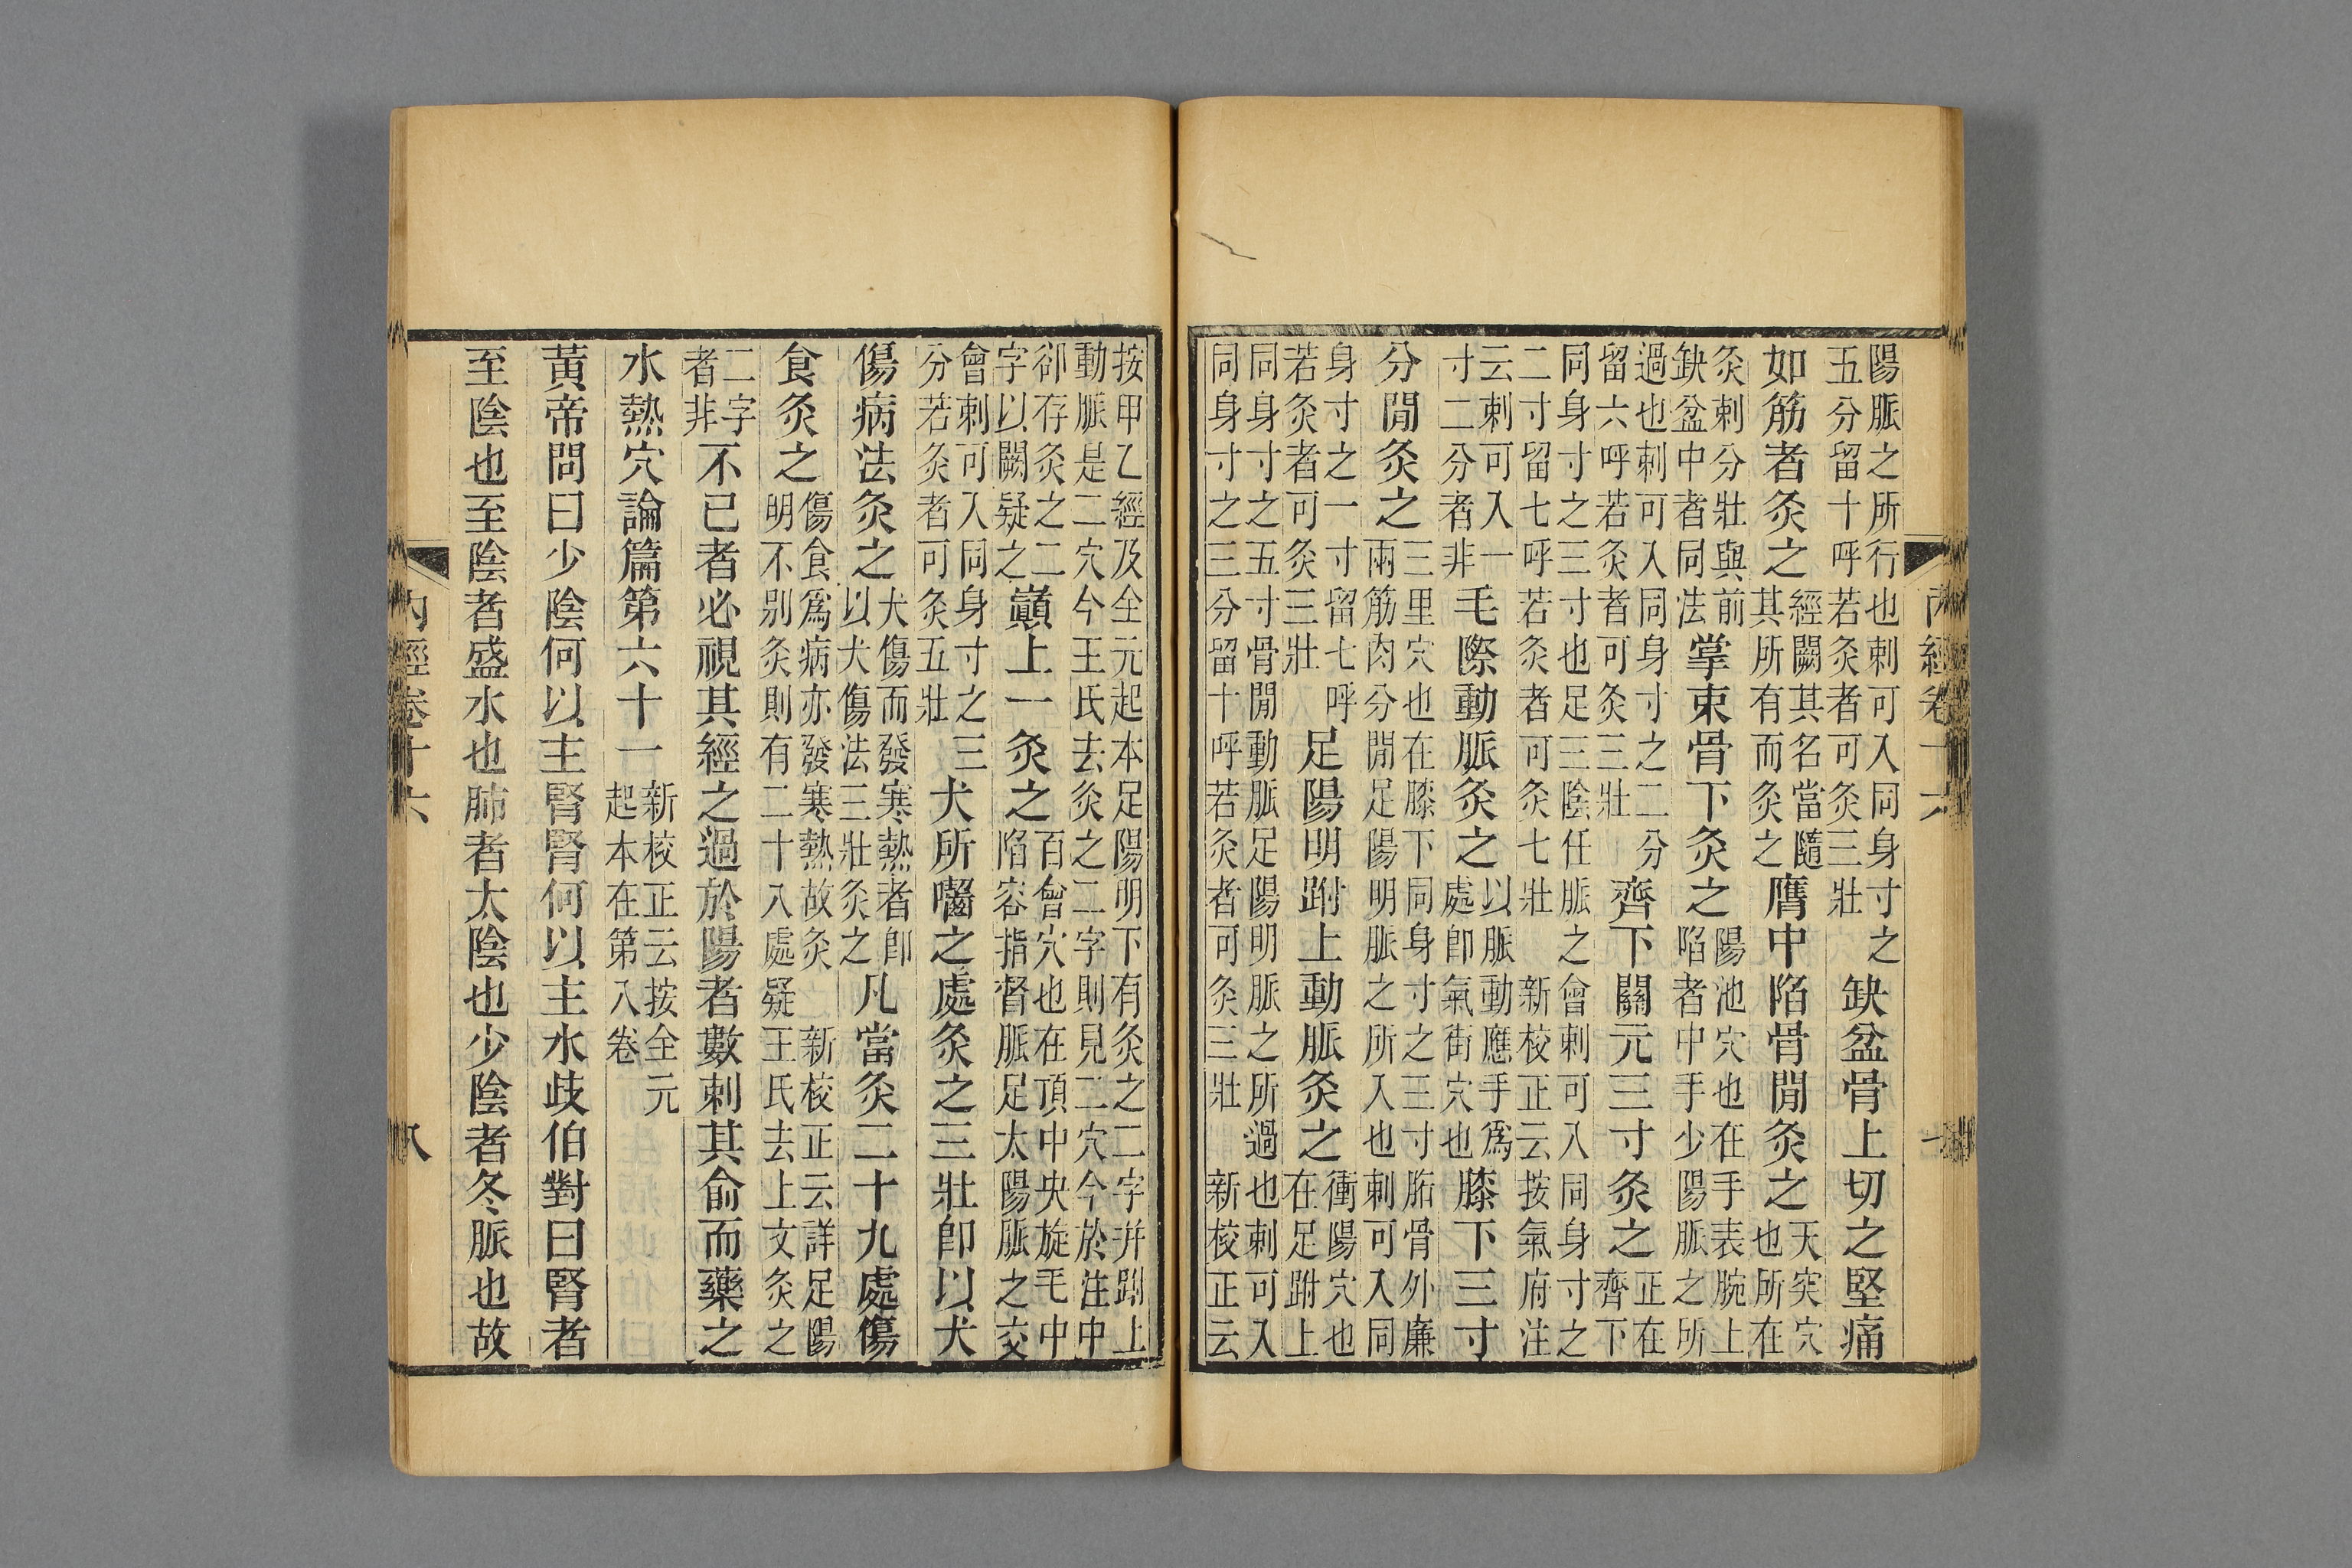 陽脈之所行也刺可入同身寸之五分留十呼若灸者可灸三壯缺盆骨上切之堅痛
如筋者灸之經闕其名當隨其所有而灸之膺中陷骨閒灸之天突穴也所在
灸刺分壯與前缺盆中者同法掌束骨下灸之陽池穴也在手表腕上陷者中手少陽脈之所
過也刺可入同身寸之二分留六呼若灸者可灸三壯齊下關元三寸灸之正在齊下
同身寸之三寸也足三陰任脈之會刺可入同身寸之二寸留七呼若灸者可灸七壯新校正云按氣府注
云刺可入一寸二分者非毛際動脈灸之以脈動應手爲處卽氣街穴也膝下三寸
分閒灸之三里穴也在膝下同身寸之三寸䯒骨外廉兩筋肉分閒足陽明脈之所入也刺可入同
身寸之一寸留七呼若灸者可灸三壯足陽明跗上動脈灸之衝陽穴也在足跗上
同身寸之五寸骨閒動脈足陽明脈之所過也刺可入同身寸之三分留十呼若灸者可灸三壯新校正云
按甲乙經及全元起本足陽明下有灸之二字并跗上動脈是二穴今王氏去灸之二字則見二穴今於注中
卻存灸之二字以闕疑之巔上一灸之百會穴也在頂中央旋毛中陷容指督脈足太陽脈之交
會刺可入同身寸之三分若灸者可灸五壯犬所嚙之處灸之三壯卽以犬
傷病法灸之犬傷而發寒熱者卽以犬傷法三壯灸之凡當灸二十九處傷
食灸之傷食爲病亦發寒熱故灸新校正云詳足陽明不别灸則有二十八處疑王氏去上文灸之
二字者非不已者必視其經之過於陽者數刺其俞而藥之
水熱穴論篇第六十一新校正云按全元起本在第八卷
黃帝問曰少陰何以主腎腎何以主水歧伯對曰腎者
至陰也至陰者盛水也肺者太陰也少陰者冬脈也故
內經卷十六 八